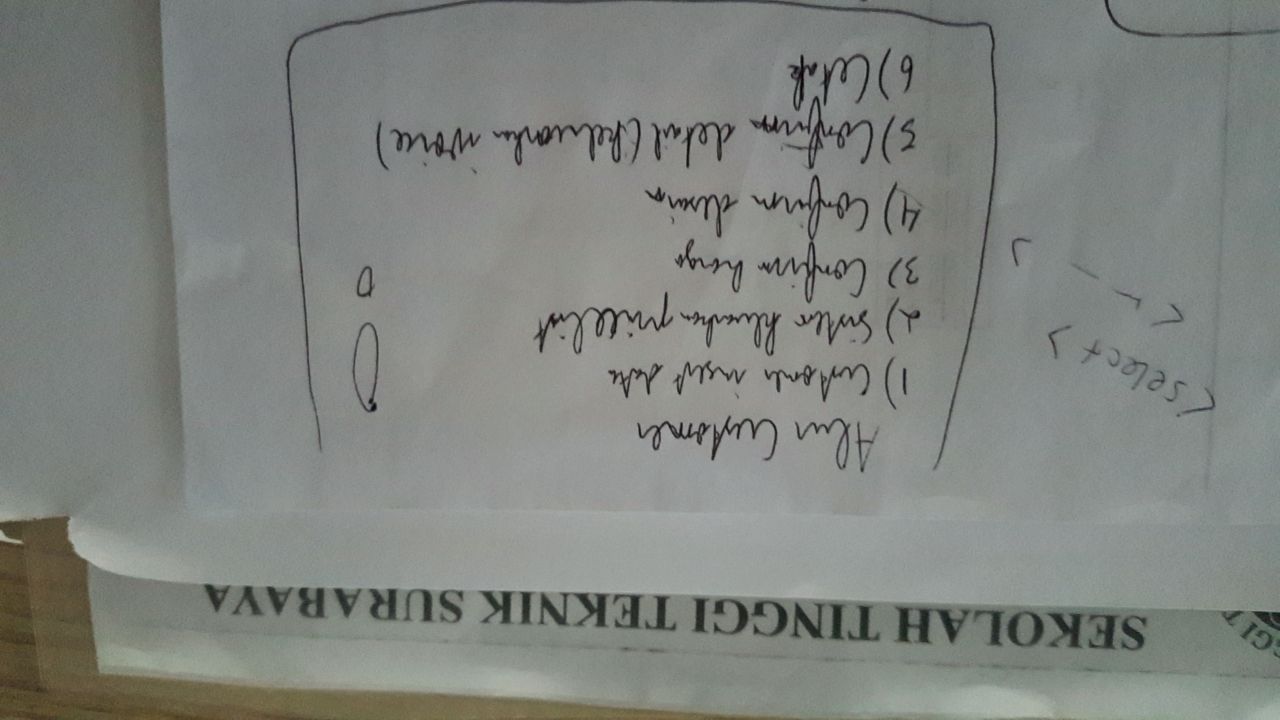 GGI T
SEKOLAH TINGGI TEKNIK SURABAYA
Alur Customer
<select>
1) Customer insert data
2) Sistem keluarkan pricelist
3) Confirm harga
4) Confirm desain
5) Confirm detail (keluarkan invoice)
6) Cetak